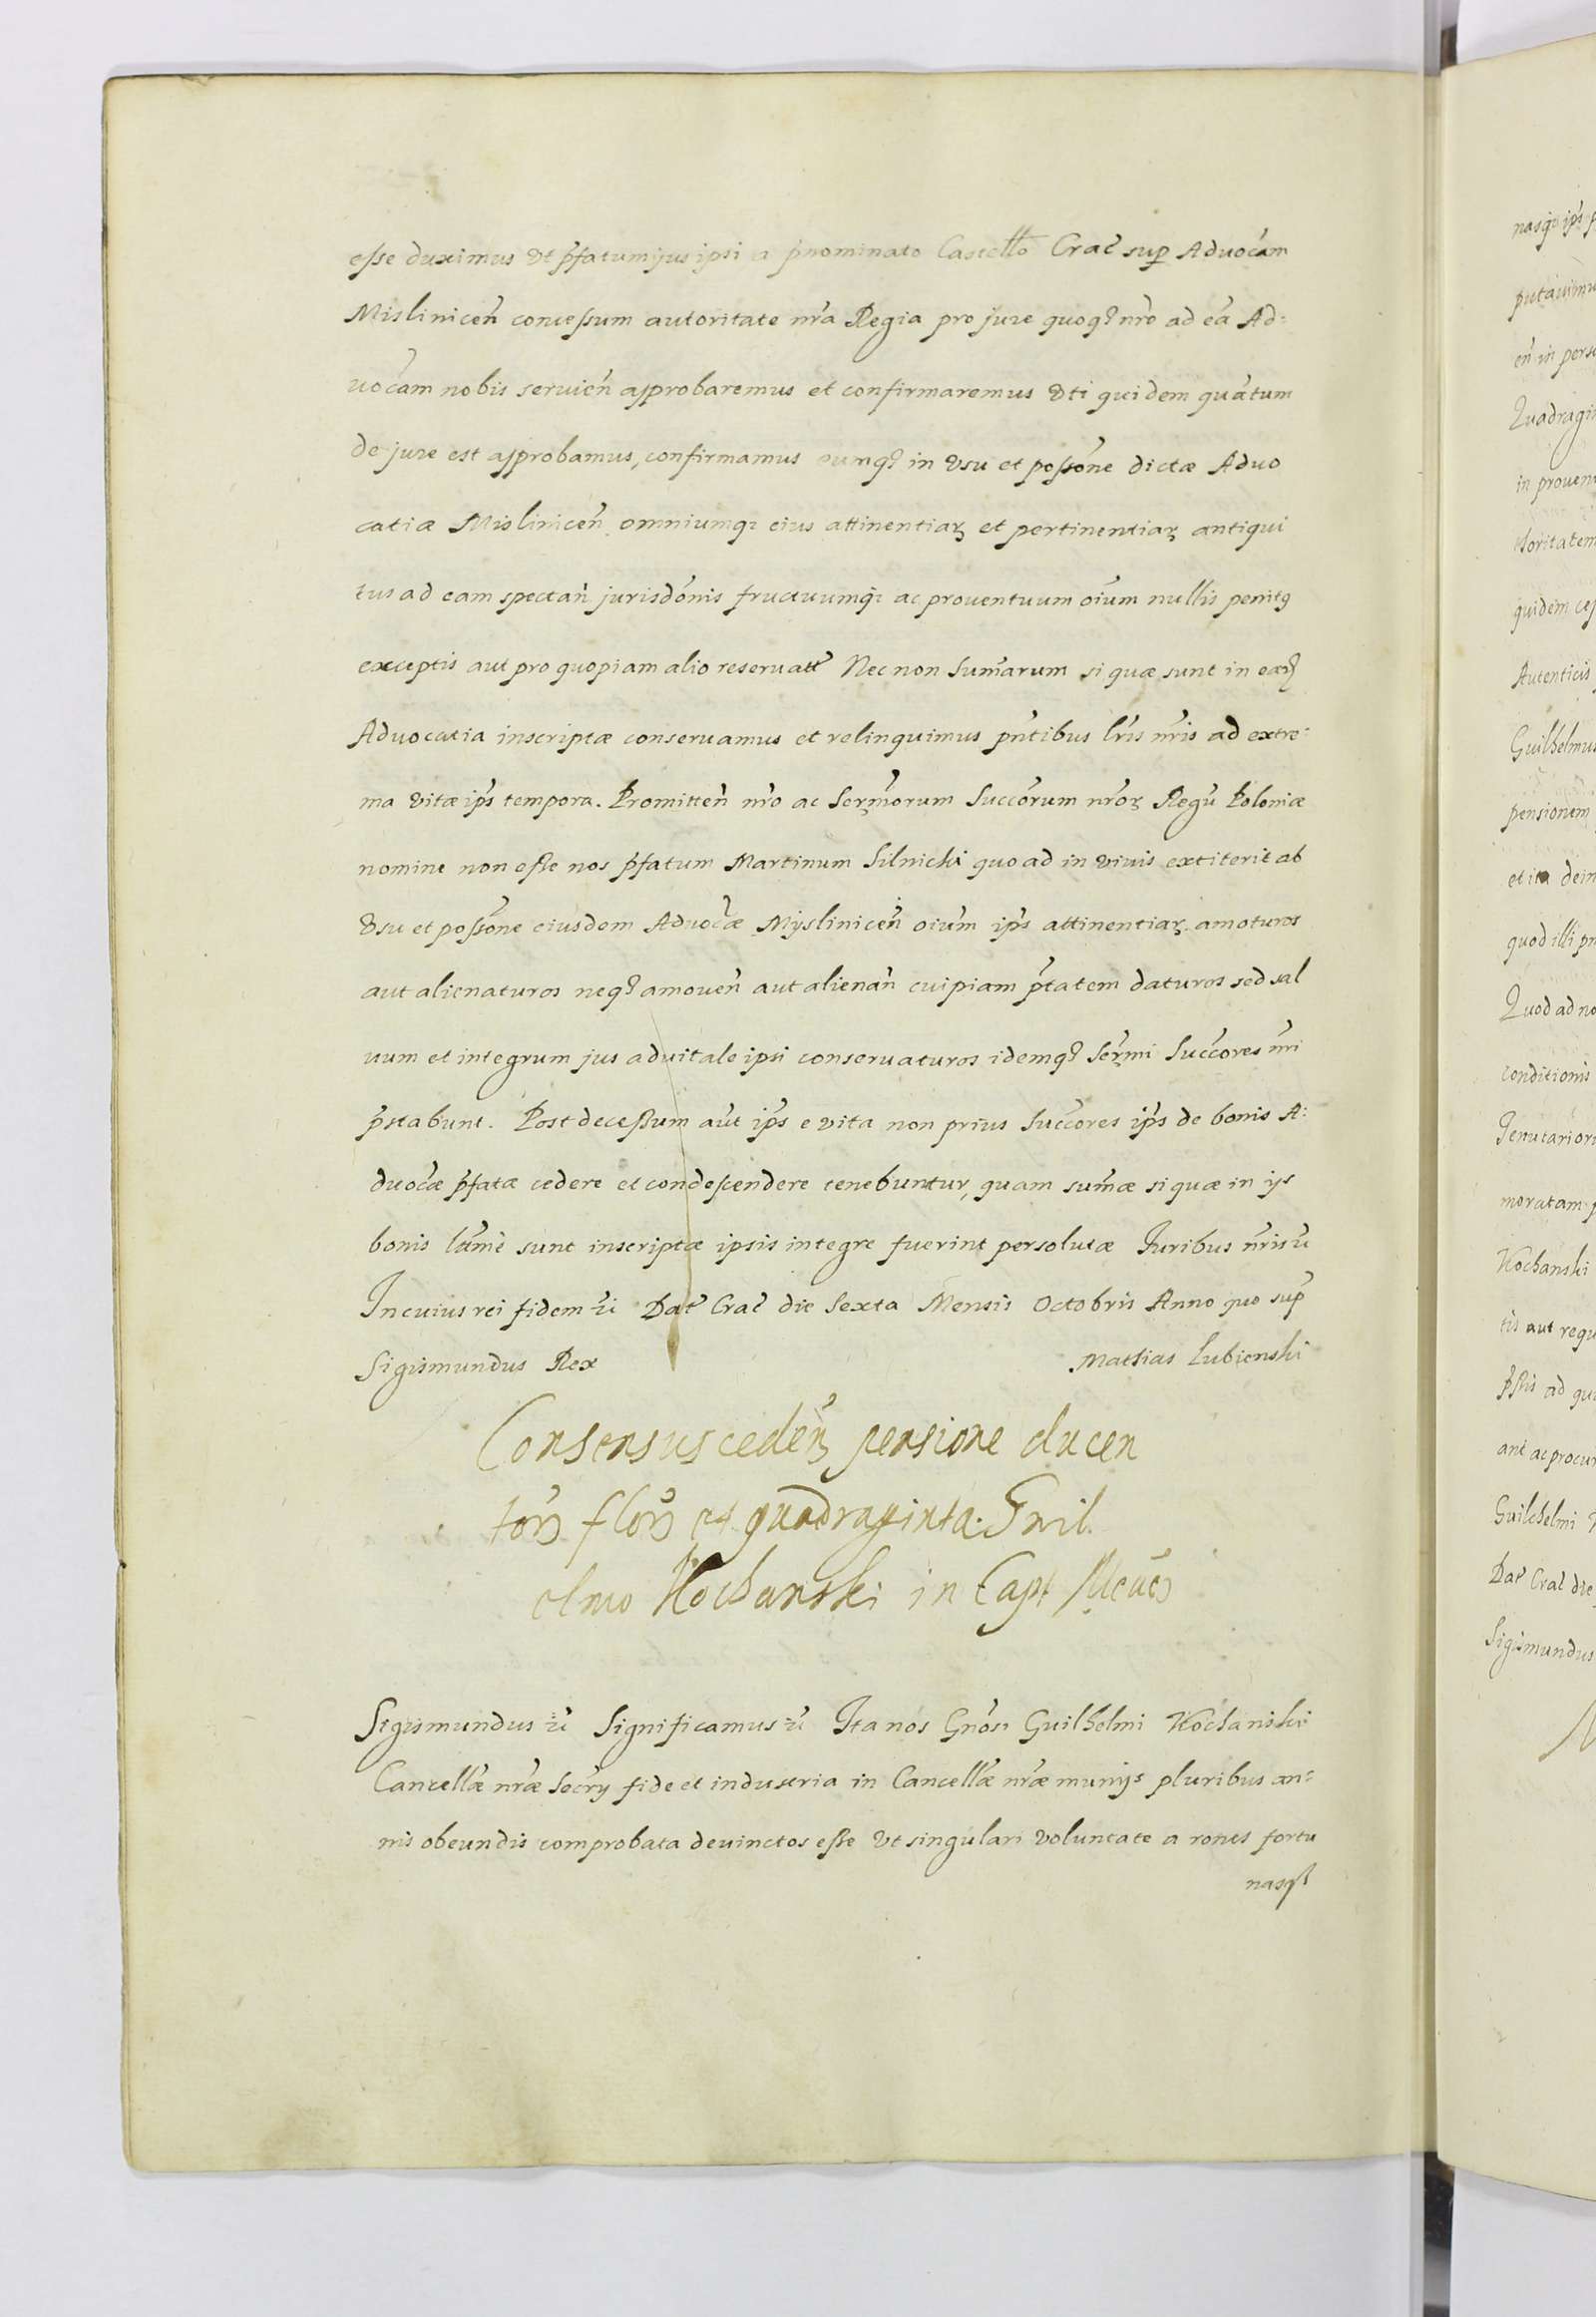 esse duximus Vt p̃fatum jus ipsi a p̃nominato Castello Crac̃ sup Aduocãm
Mislinicen̄ concessum autoritate nr̃a Regia pro jure quoq; nrō ad eã Ad=
uocãm nobis seruien̄ approbaremus et confirmaremus Vti quidem quãtum
de jure est approbamus, confirmamus eumq; in Vsu et possõne dictæ Aduo
catiæ Mislinicen̄ omniumq; eius attinentiaꝝ et pertinentiaꝝ antiqui
tus ad eam spectan̄ jurisdõnis fructuumq; ac prouentuum oĩum nullis penitꝰ
exceptis aut pro quopiam alio reseruatt̃ Nec non Sum̃arum si quæ sunt in eadꝫ
Aduocatia inscriptæ conseruamus et relinquimus pñtibus lr̃is nr̃is ad extre=
ma vitæ ip̃s tempora. Promitten̄ nrõ ac Serm̃orum Succõrum nrõꝝ Regũ Poloniæ
nomine non esse nos p̃fatum Martinum Silnicki quo ad in viuis extiterit ab
Vsu et possõne eiusdem Aduoc̃æ Myslinicen̄ oiũm ip̃s attinentiaꝝ amoturos
aut alienaturos neq; amouen̄ aut alienan̄ cuipiam p̃tatem daturos sed sal
uum et integrum jus aduitale ipsi conseruaturos idemq; Serm̃i Succ̃ores nr̃i
p̃stabunt. Post decessum aũt ip̃s e vita non prius Succ̃ores ip̃s de bonis A=
duoc̃æ p̃fatæ cedere et condescendere tenebuntur, quam sum̃æ si quæ in ijs
bonis ltm̃e sunt inscriptæ ipsis integre fuerint persolutæ Iuribus nr̃is ꝛc̃
In cuius rei fidem ꝛc̃ Dat̃ Crac̃ die Sexta Mensis Octobris Anno quo sup̃
Sigismundus Rex Mathias Lubienski
Consensus ceden̄ꝫ pensione ducen
torꝫ florꝫ et quadraginta Guil.
elmo Kochanski in Capt
Sigismundus ꝛc̃ Significamus ꝛc̃ Ita nos Gñosi Guilhelmi Kochanski
Cancellæ nr̃æ Secr̃ij fide et industria in Cancellæ nr̃æ munijs pluribus an=
nis obeundis comprobata deuinctos esse Vt singulari voluntate a ronẽs fortu
nasq;